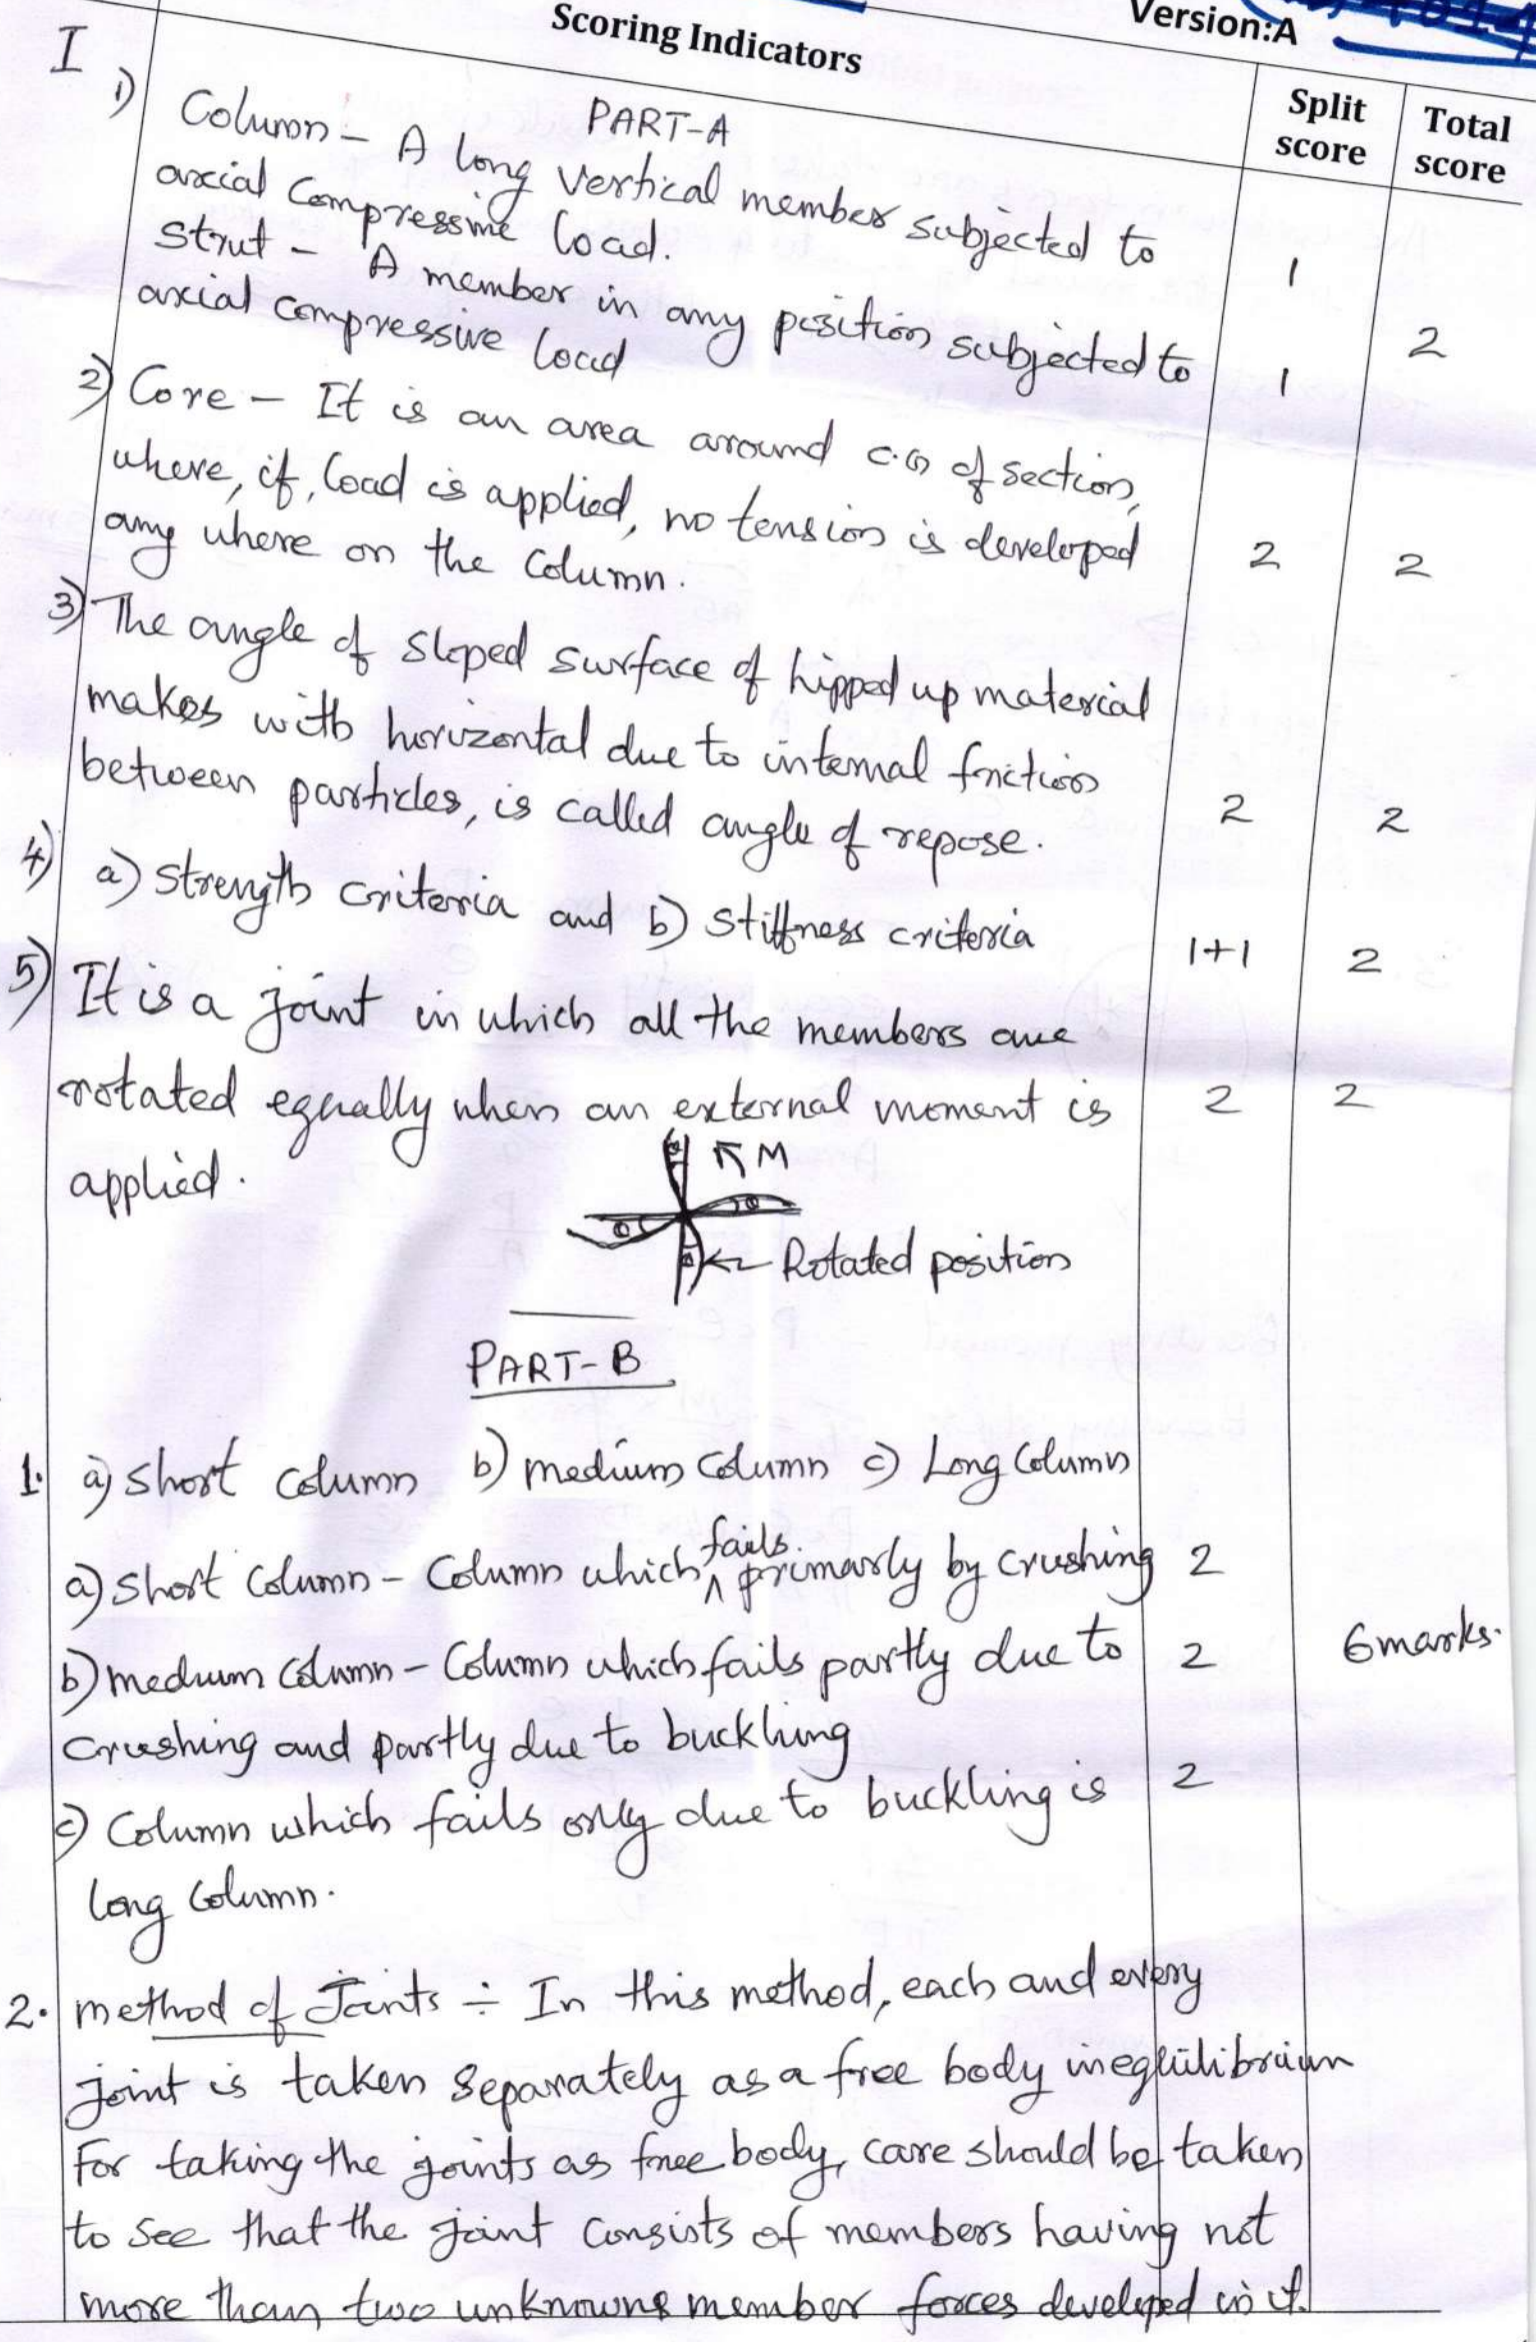 Scoring Indicators
Version:A
Split score
Total score
I
PART-A
1) Column – A long vertical member subjected to
axial compressive load.
1
Strut – A member in any position subjected to
axial compressive load
1
2
2) Core – It is an area around c.G of section,
where, if, load is applied, no tension is developed
any where on the column.
2 2
3) The angle of sloped surface of hipped up material
makes with horizontal due to internal friction
between particles, is called angle of repose.
2 2
4) a) Strength criteria and b) Stiffness criteria
1+1 2
5) It is a joint in which all the members are
rotated equally when an external moment is
2 2
applied.
M
θ θ
θ θ
Rotated position
PART-B
1. a) Short column b) medium column c) Long Column
a) Short Column – Column which fails primarly by crushing 2
b) medium Column – Column which fails partly due to 2
6marks.
crushing and partly due to buckling
c) Column which fails only due to buckling is 2
long Column.
2. method of Joints ÷ In this method, each and every
joint is taken separately as a free body in equilibrium
For taking the joints as free body, care should be taken
to see that the joint consists of members having not
more than two unknowns member forces developed in it.